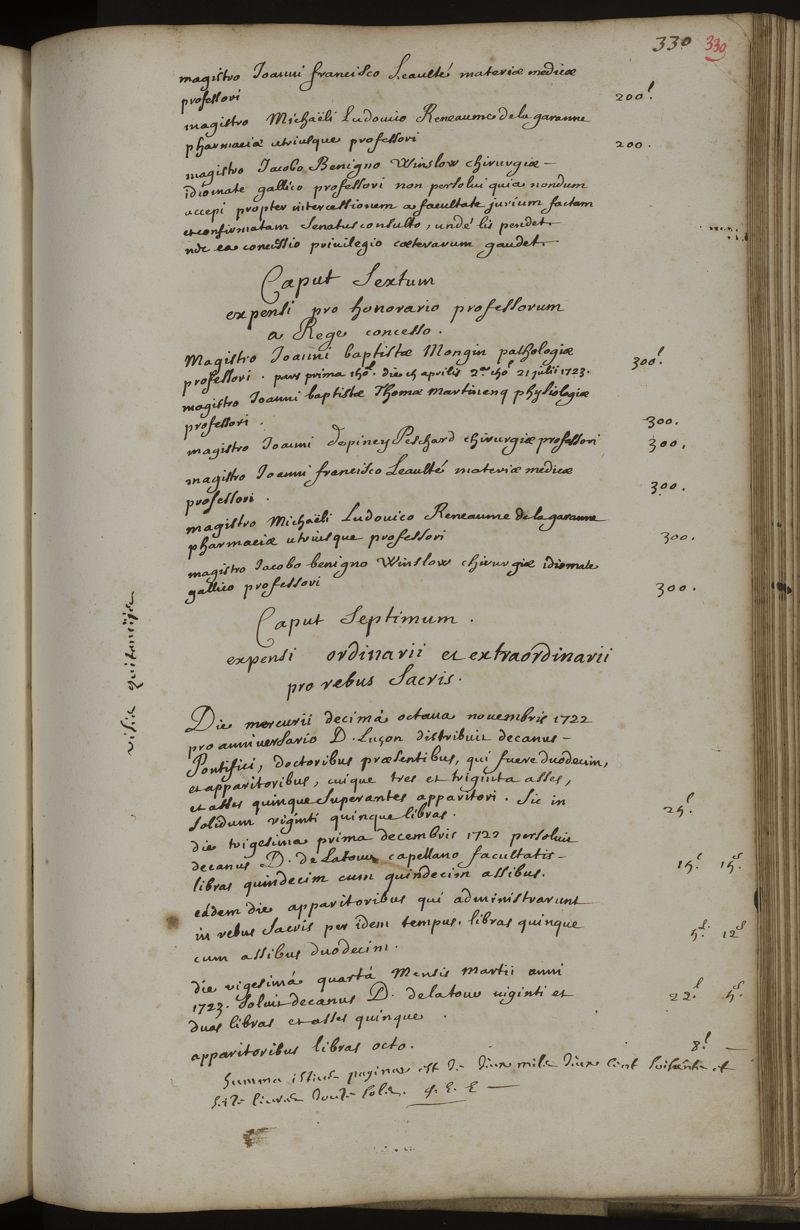 330 330
magistro Joanni francisco Leaulté materiæ medicæ
professori 200ˡ.
magistro Michaëli Ludovico Reneaume de la garanne
pharmaciæ utriusque professori 200.
magistro Jacobo Benigno Winslow chirurgiæ –
idiomate gallico professori non persolui quia nondum
accepi propter intercessionem a facultate jurium factam
et confirmatam Senatusconsulto, undé lis pendet.
nec ea concessio privilegio cæterarum gaudet.
Caput Sextum
expensi pro honorario professorum
a Rege concesso.
Magistro Joanni baptistæ Mongin pathologiæ
professori . pars prima 150ˡ. die 15 aprilis 2ᵃ 150ˡ 21 julii 1723. 300ˡ.
magistro Joanni baptistæ Thomæ Martinenq physiologiæ
professori . 300.
magistro Joanni Depiney Peschard chirurgiæ professori 300.
magistro Joanni francisco Leaulté materiæ medicæ
professori . 300.
magistro Michaëli Ludovico Reneaume de la garanne
pharmaciæ utriusque professori 300.
magistro Jacobo benigno Winslow chirurgiæ idiomate
gallico professori 300.
Caput Septimum .
expensi ordinarii et extraordinarii
pro rebus Sacris.
Die mercurii decimâ octava novembris 1722
pro anniversario D. Luçon distribuit decanus –
Pontifici, doctoribus præsentibus, qui fuere duodecim,
et apparitoribus, cuique tres et triginta asses,
et asses quinque superantes apparitori. Sic in
solidum viginti quinque libras. 25ˡ
die trigesima prima decembris 1722 persoluit
decanus D. de Latour capellano facultatis –
libras quindecim cum quindecim assibus. 15ˡ 15ˢ.
eâdem die apparitoribus qui administrarunt
in rebus Sacris per idem tempus. libras quinque
cum assibus duodecim. 5ˡ. 12ˢ
die vigesimâ quartâ Mensis Martii anni
1723. Soluit decanus D. delatour viginti et
duas libras et asses quinque . 22ˡ. 5ˢ.
apparitoribus libras octo. 8ˡ. —
Summa istius paginæ est de deux mile deux cent soisante et
seize livres douze sols. q. E. E —